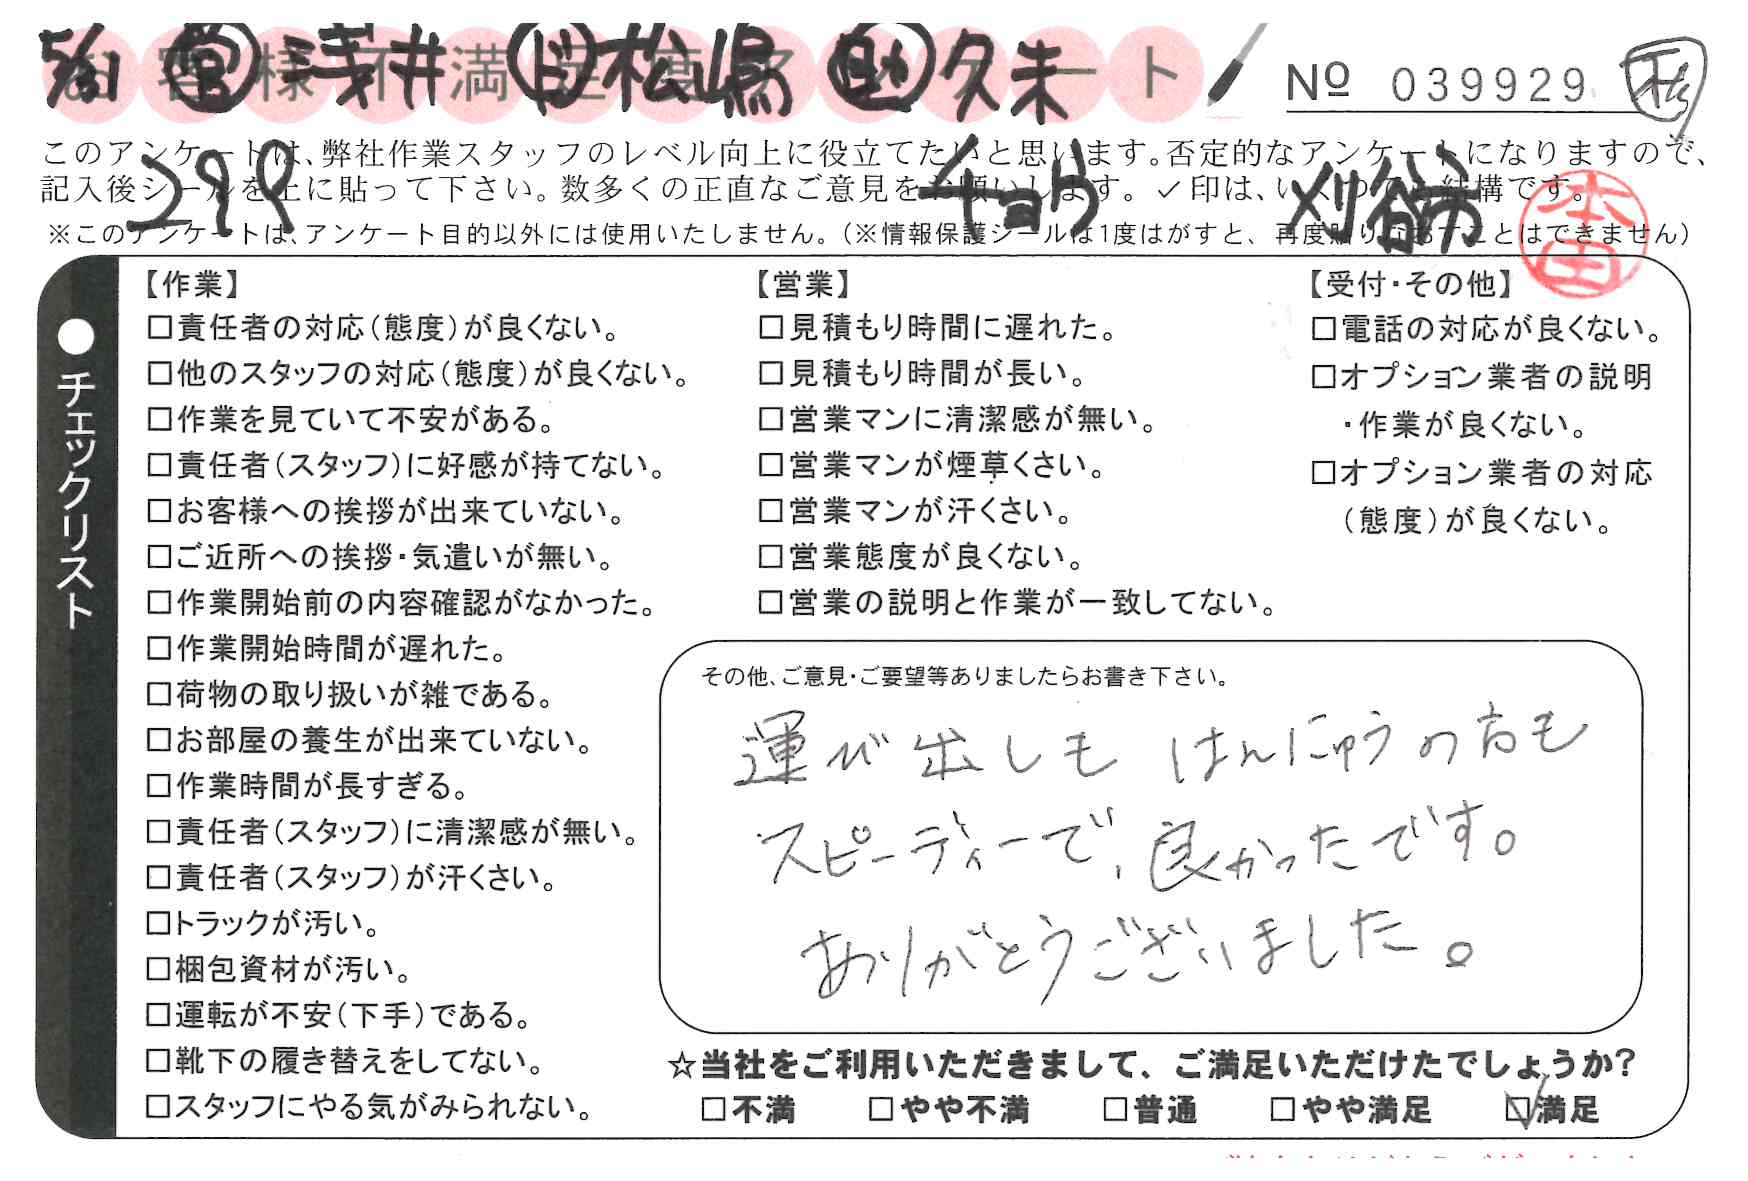 5/31 営 浅井 ド 松嶋 助 久朱
お客様不満足度アンケート
№ 039929
このアンケートは、弊社作業スタッフのレベル向上に役立てたいと思います。否定的なアンケートになりますので、
記入後シールを上に貼って下さい。数多くの正直なご意見をお願いします。✓印は、いくつでも結構です。
299 チョウ 刈谷市
本田
※このアンケートは、アンケート目的以外には使用いたしません。（※情報保護シールは1度はがすと、再度貼りなおすことはできません）
●チェックリスト
【作業】
□責任者の対応（態度）が良くない。
□他のスタッフの対応（態度）が良くない。
□作業を見ていて不安がある。
□責任者（スタッフ）に好感が持てない。
□お客様への挨拶が出来ていない。
□ご近所への挨拶・気遣いが無い。
□作業開始前の内容確認がなかった。
□作業開始時間が遅れた。
□荷物の取り扱いが雑である。
□お部屋の養生が出来ていない。
□作業時間が長すぎる。
□責任者（スタッフ）に清潔感が無い。
□責任者（スタッフ）が汗くさい。
□トラックが汚い。
□梱包資材が汚い。
□運転が不安（下手）である。
□靴下の履き替えをしてない。
□スタッフにやる気がみられない。
【営業】
□見積もり時間に遅れた。
□見積もり時間が長い。
□営業マンに清潔感が無い。
□営業マンが煙草くさい。
□営業マンが汗くさい。
□営業態度が良くない。
□営業の説明と作業が一致してない。
【受付・その他】
□電話の対応が良くない。
□オプション業者の説明
・作業が良くない。
□オプション業者の対応
（態度）が良くない。
その他、ご意見・ご要望等ありましたらお書き下さい。
運び出しも はんにゅうの方も
スピーディーで、良かったです。
ありがとうございました。
☆当社をご利用いただきまして、ご満足いただけたでしょうか？
□不満 □やや不満 □普通 □やや満足 ☑満足